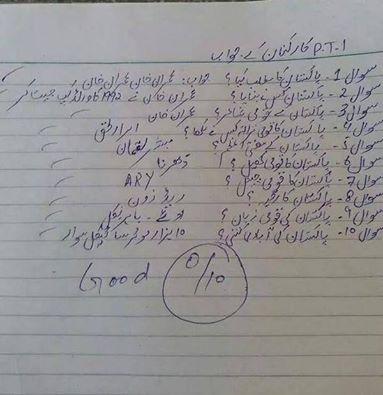 P.T.I کارکنان کے جواب
سوال 1 - پاکستان کا مطلب کیا؟ جواب: عمران خان عمران خان
سوال 2 - پاکستان کس نے بنایا؟ عمران خان نے 1992 کا ورلڈ کپ جیت کر
سوال 3 - پاکستان کے قومی شاعر؟ عمران خان
سوال 4 - پاکستان کا قومی ترانہ کس نے لکھا؟ ابرارلحق
سوال 5 - پاکستان کے مبشر لقمان
سوال 6 - پاکستان کا قومی کھیل؟ دھرنا
سوال 7 - پاکستان کا قومی چینل؟ ARY
سوال 8 - پاکستان کا ریڈ زون
سوال 9 - پاکستان کی قومی زبان؟ اوئے -
سوال 10 - پاکستان کی آبادی کتنی؟ 10 ہزار موٹر سائیکل سوار
Good 0/10